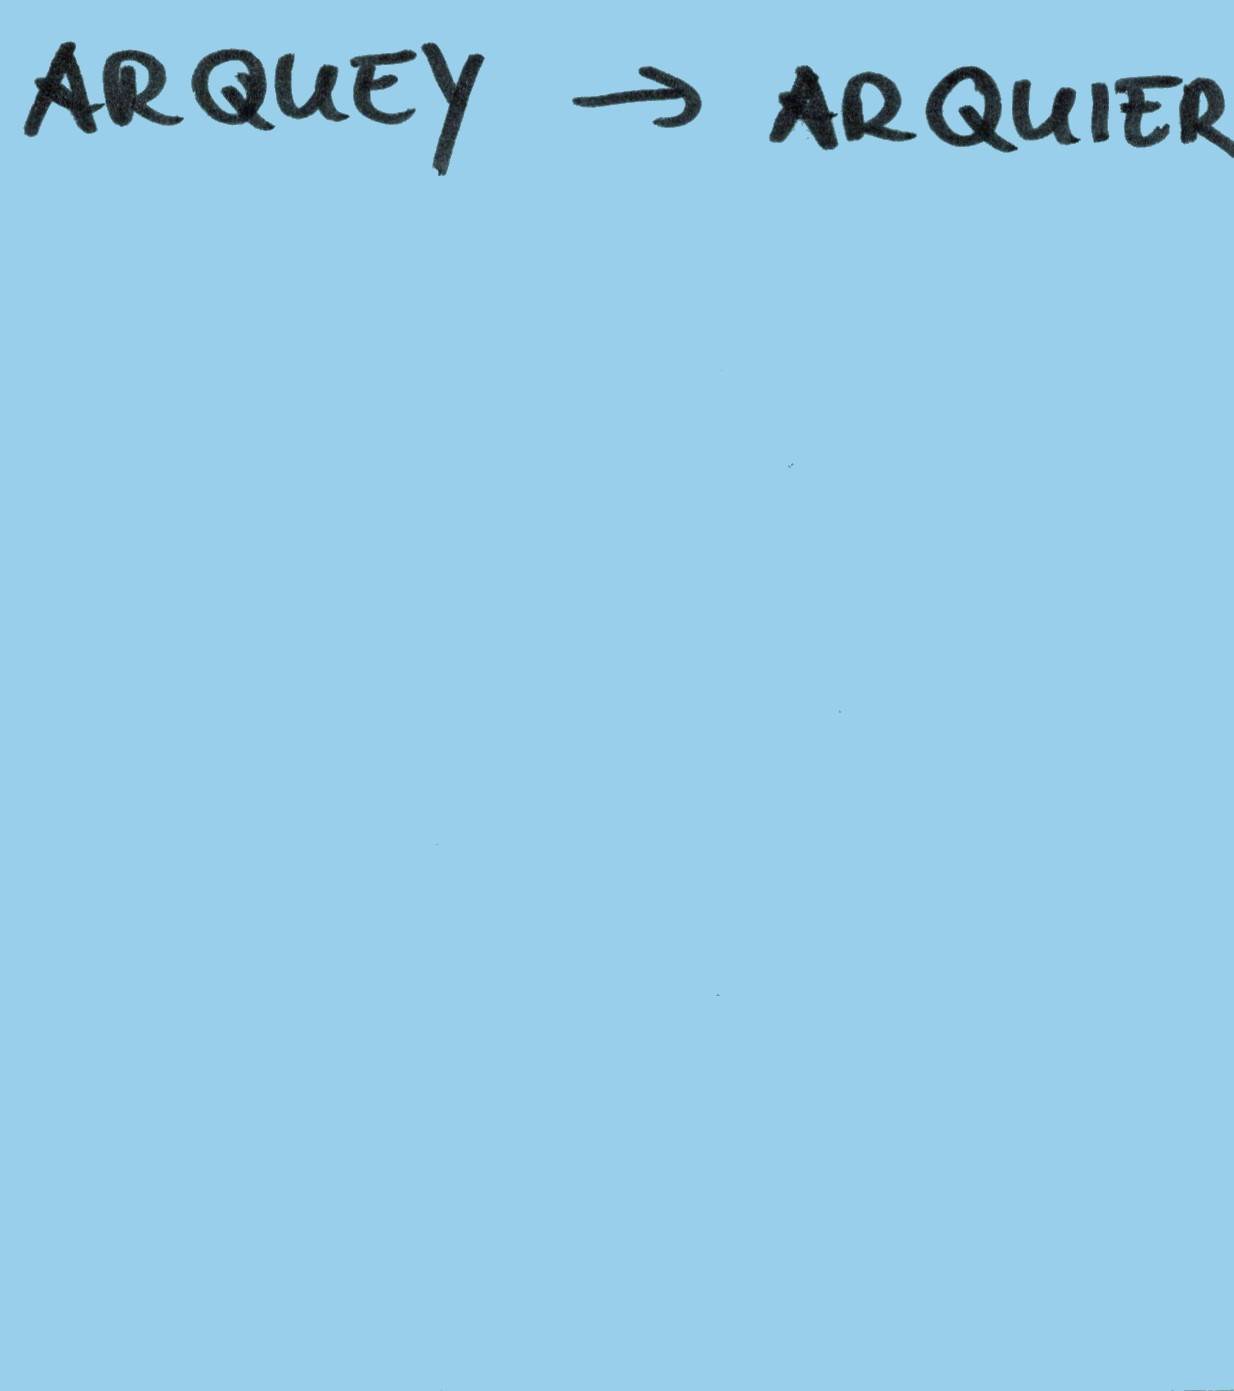 ARQUEY → ARQUIER